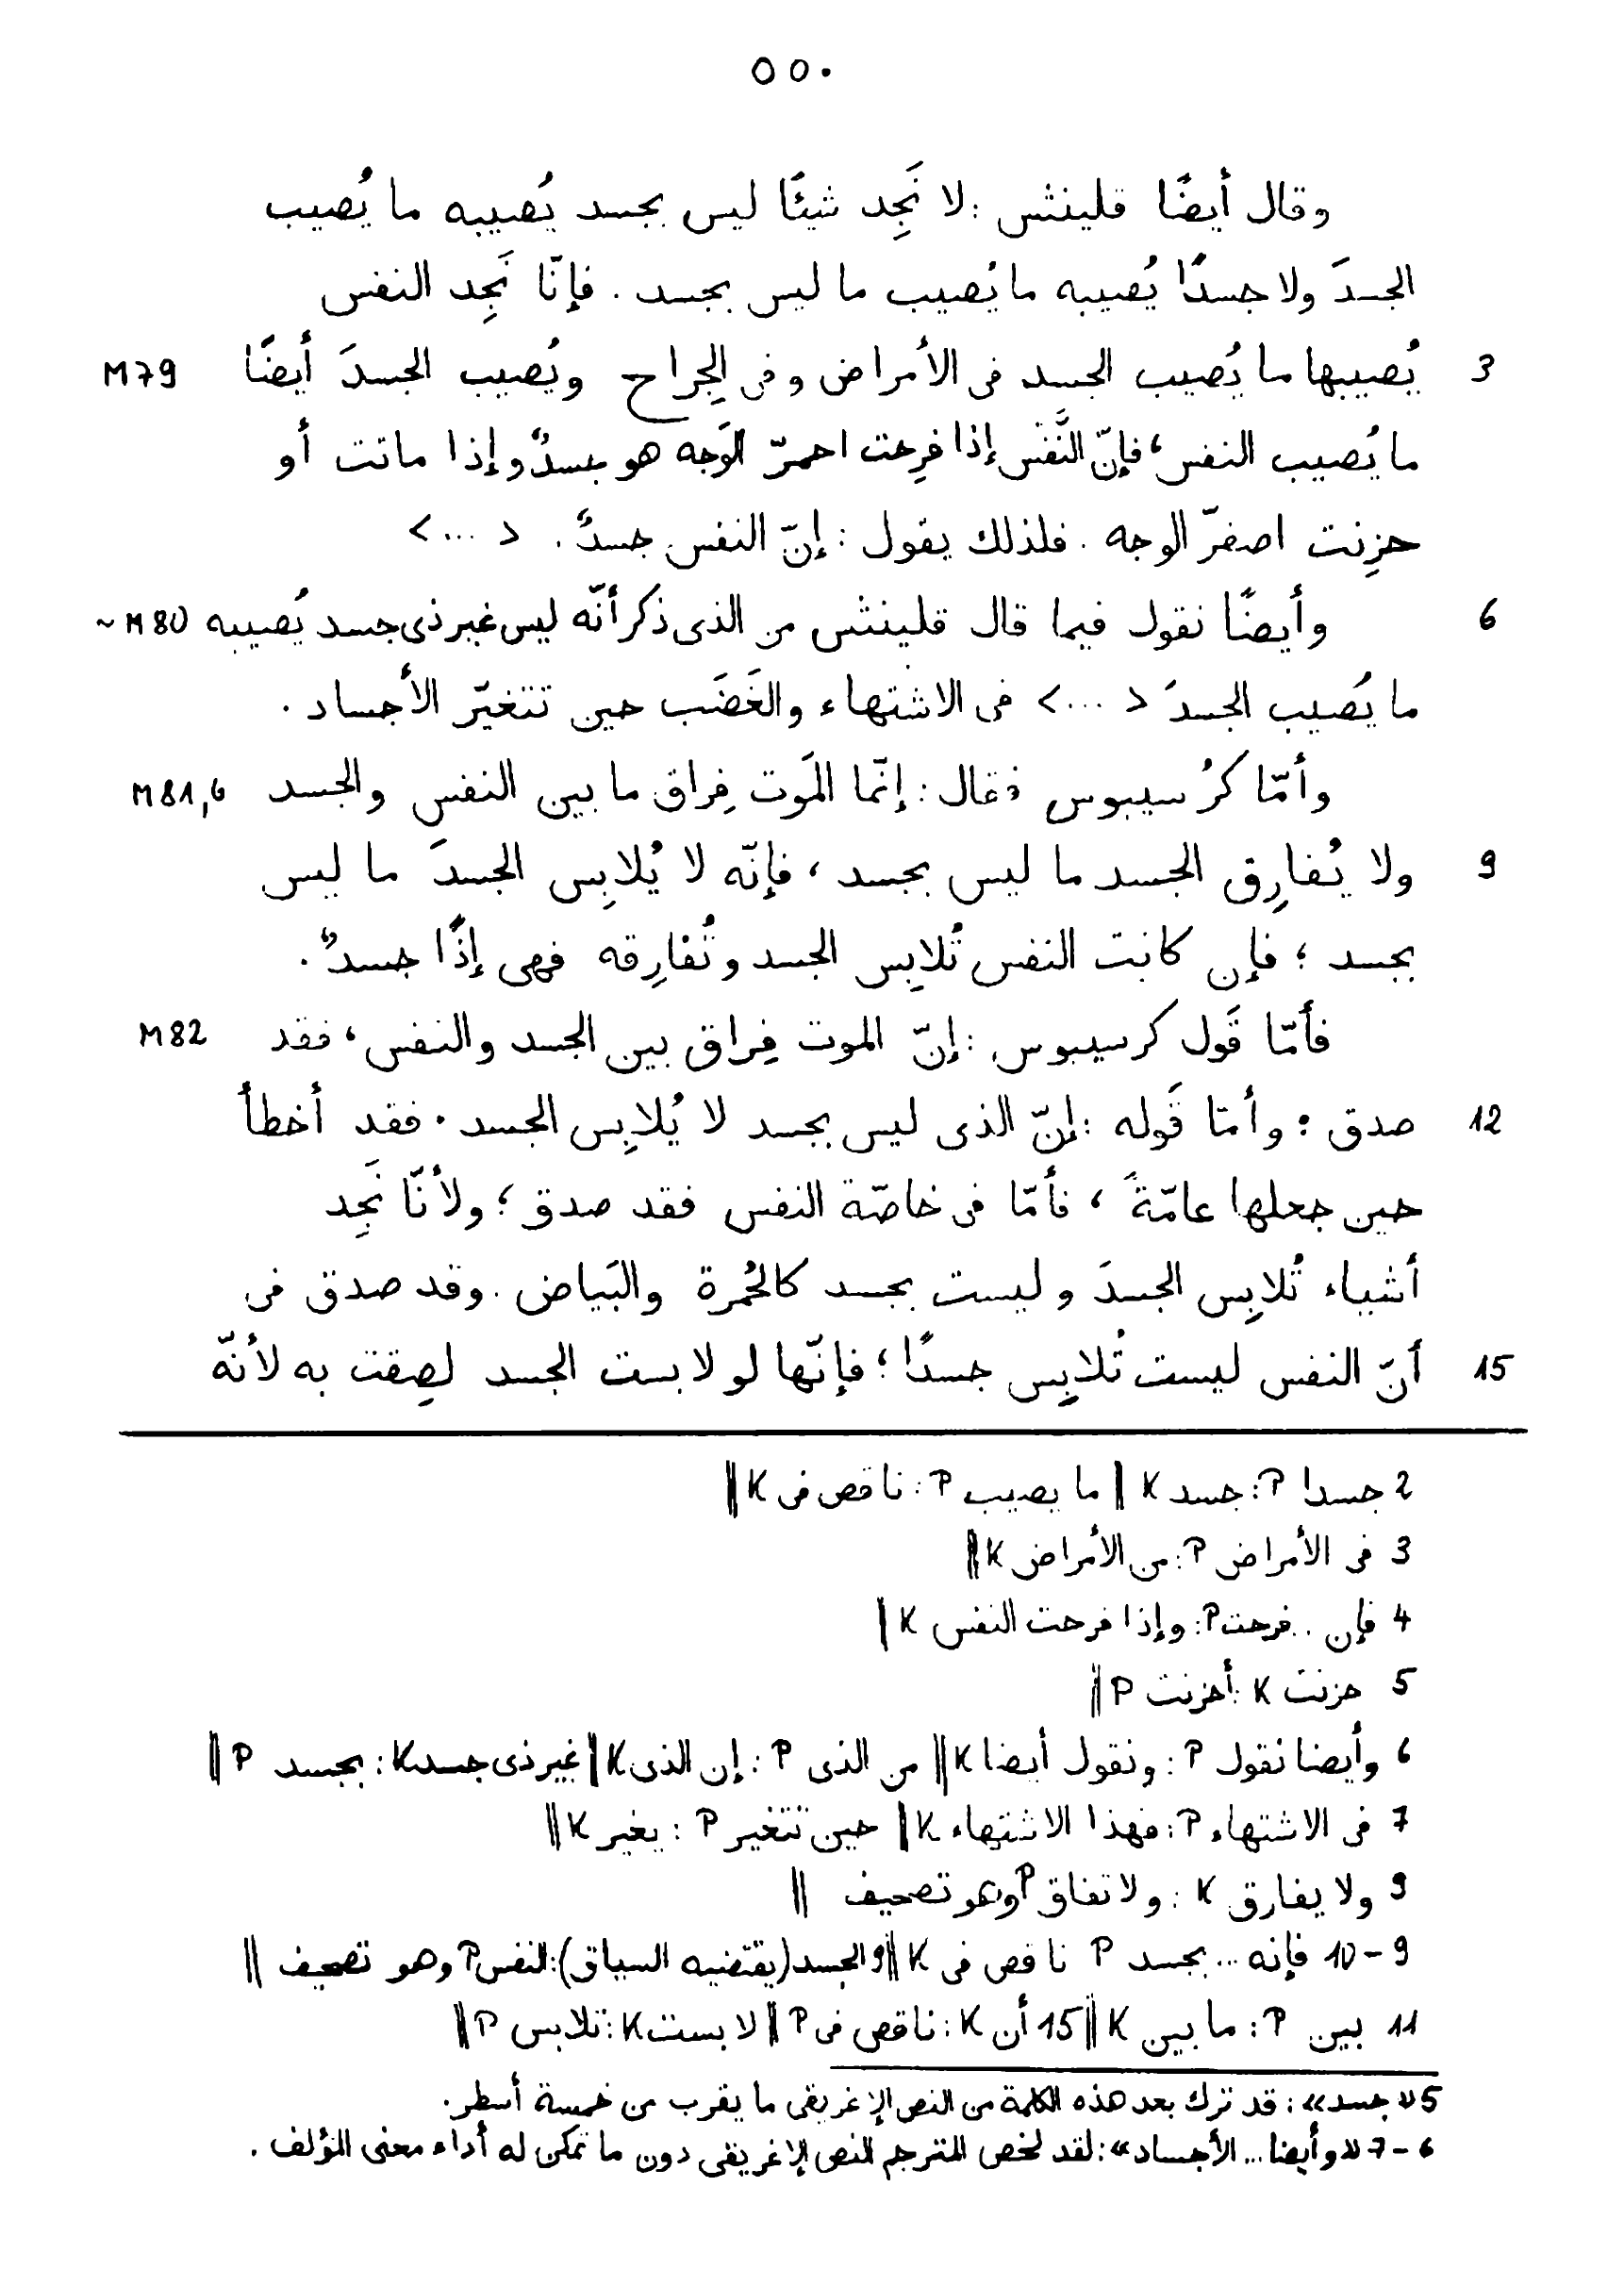 ٥٥٠
وقال أيضًا قلينثس : لا نَجِد شيئًا ليس بجسد يُصيبه ما يُصيب
الجسدَ ولا جسدًا يُصيبه ما يُصيب ما ليس بجسد . فإنّا نَجِد النفس
3 يُصيبها ما يُصيب الجسد فى الأمراض وفى الجِراح ويُصيب الجسدَ أيضًا M79
ما يُصيب النفس ، فإنّ النَّفْس إذا فرِحت احمرّ الوَجه هو جسدٌ وإذا ماتت أو
حزِنت اصفرّ الوجه . فلذلك يقول : إنّ النفس جسدٌ . < ... >
6 وأيضًا نقول فيما قال قلينثس من الذى ذكر أنّه ليس غير ذى جسد يُصيبه M80 ~
ما يُصيب الجسدَ < ... > فى الاشتهاء والغَضَب حين تتغيّر الأجساد .
وأمّا كرُسيبوس فقال : إنّما المَوت فِراق ما بين النفس والجسد M81,6
9 ولا يُفارِق الجسد ما ليس بجسد ، فإنّه لا يُلابِس الجسدَ ما ليس
بجسد ؛ فإن كانت النفس تُلابِس الجسد وتُفارِقه فهى إذًا جسدٌ .
فأمّا قَول كرسيبوس : إنّ الموت فِراق بين الجسد والنفس ، فقد M82
12 صدق ؛ وأمّا قَوله : إنّ الذى ليس بجسد لا يُلابِس الجسد . فقد أخطأ
حين جعلها عامّةً ، فأمّا فى خاصّة النفس فقد صدق ؛ ولأنّا نَجِد
أشياء تُلابِس الجسدَ وليست بجسد كالحُمرة والبَياض . وقد صدق فى
15 أنّ النفس ليست تُلابِس جسدًا ؛ فإنّها لو لابست الجسد لصِقت به لأنّه
2 جسدا P : جسد K || ما يصيب P : ناقص فى K ||
3 فى الأمراض P : من الأمراض K ||
4 فإن .. فرحت P : وإذا فرحت النفس K |
5 حزنت K : أحزنت P ||
6 وأيضا نقول P : ونقول أيضا K || من الذى P : إن الذى K || غير ذى جسد K : بجسد P ||
7 فى الاشتهاء P : فهذا الاشتهاء K || حين تتغير P : يغير K ||
9 ولا يفارق K : ولا تفاق P وهو تصحيف ||
9-10 فإنه ... بجسد P ناقص فى K || 9 الجسد (يقتضيه السياق) : النفس P وهو تصحيف ||
11 بين P : ما بين K || 15 أن K : ناقص فى P || لابست K : تلابس P ||
5 «جسد» : قد ترك بعد هذه الكلمة من النص الإغريقى ما يقرب من خمسة أسطر .
6-7 «وأيضا ... الأجساد» : لقد لخص المترجم النص الإغريقى دون ما تمكن له أداء معنى المؤلف .